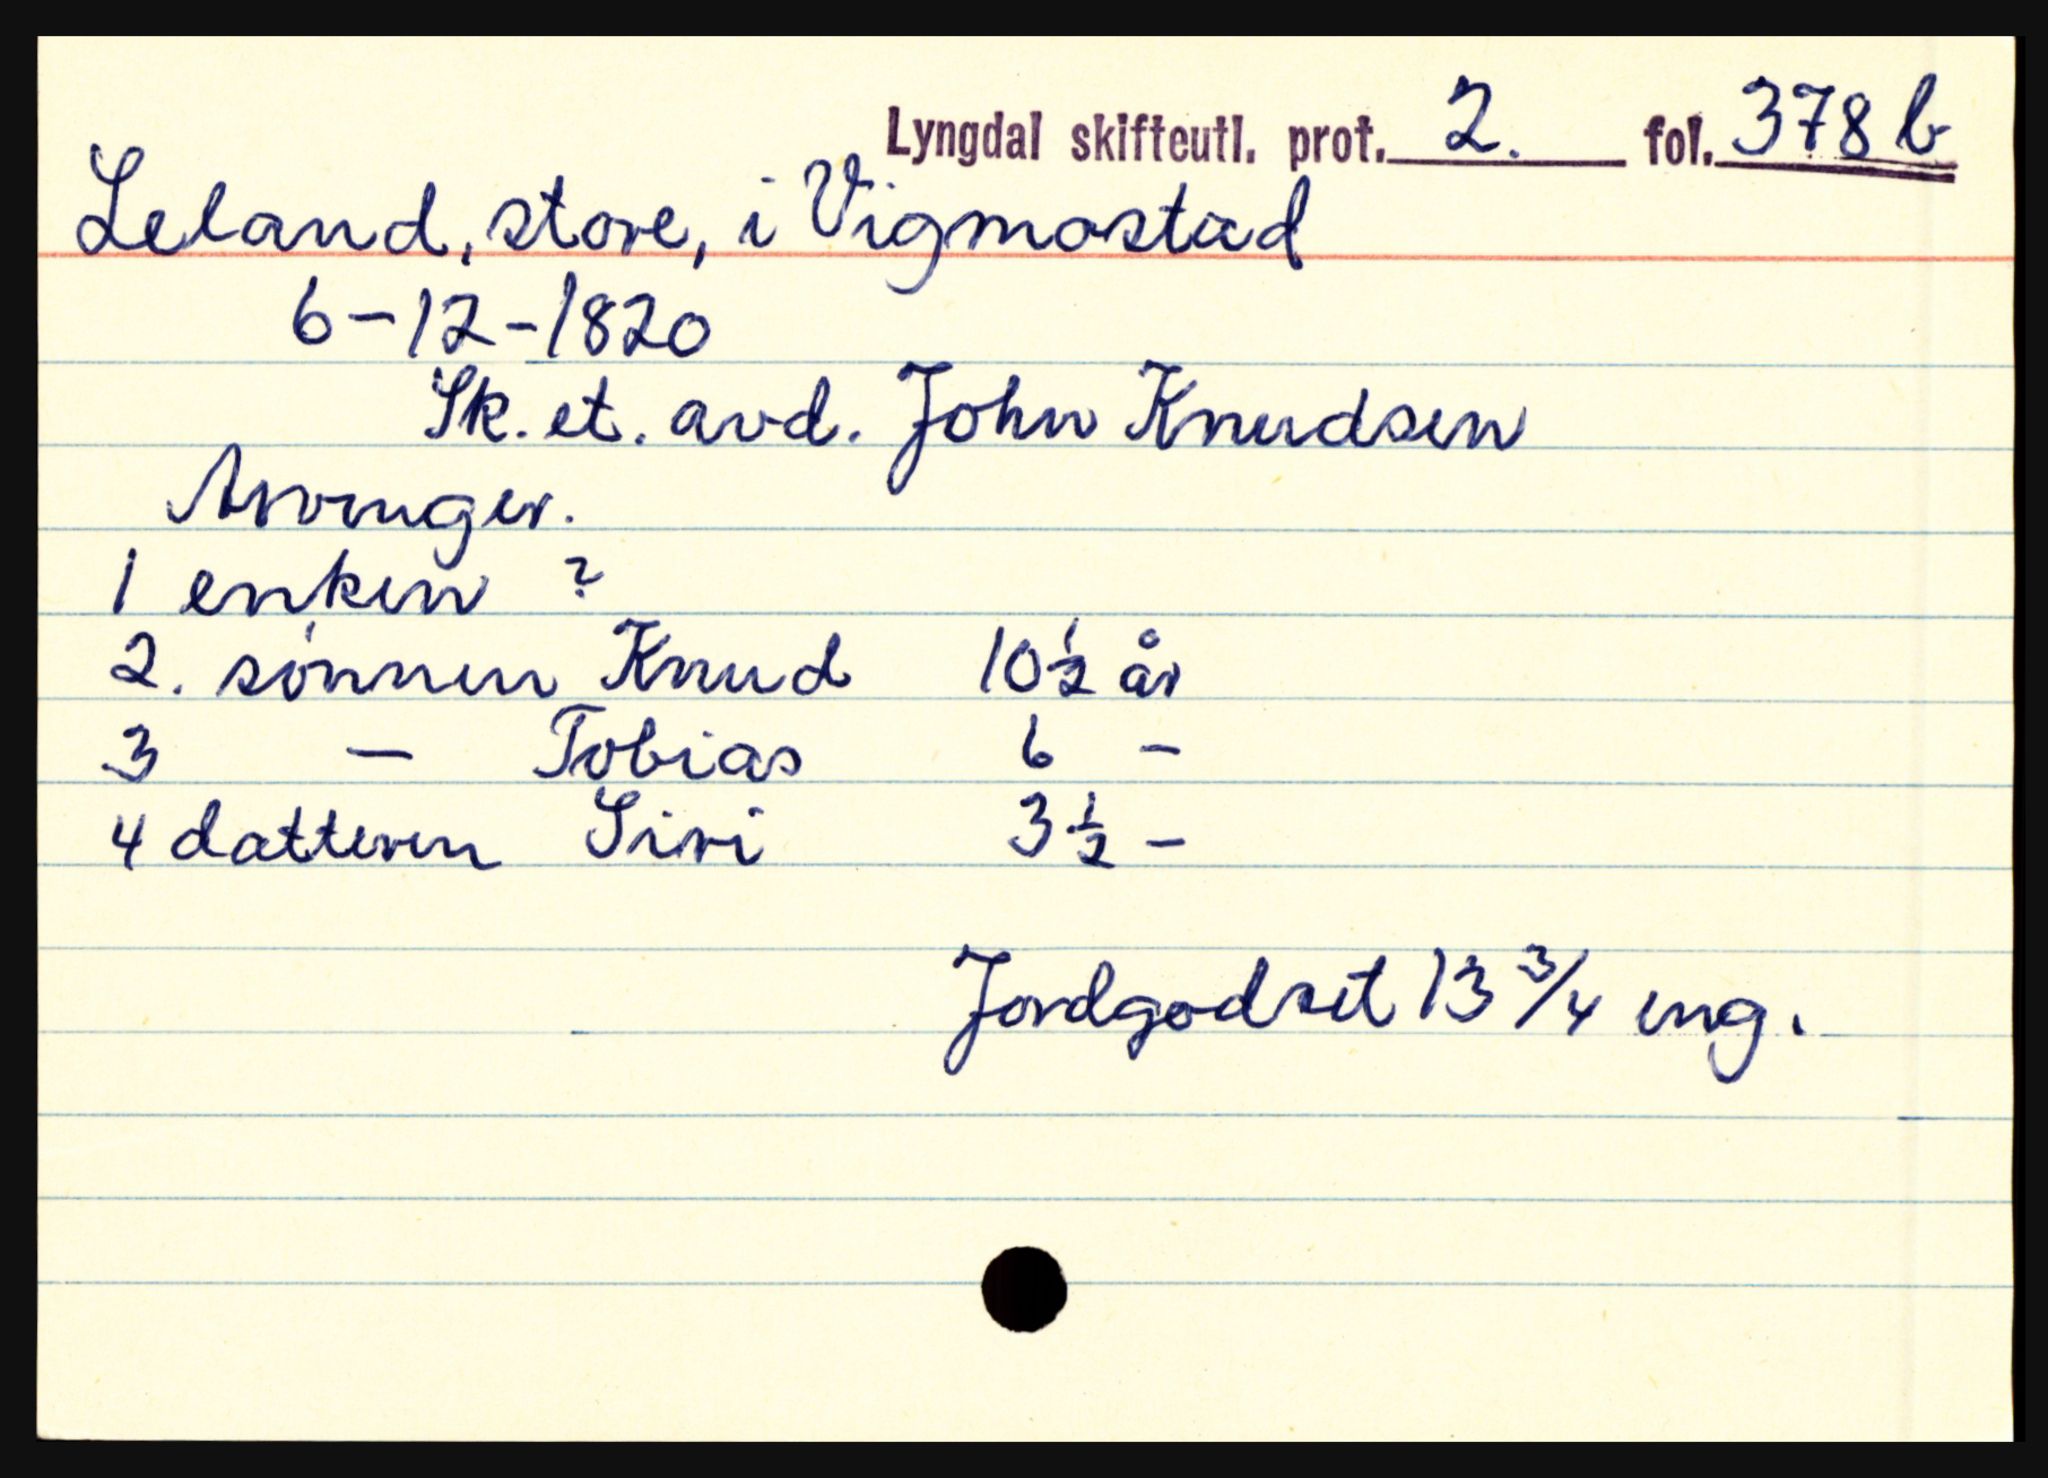 Lyngdal skifteutl. prot. 2. fol. 378 b
Leland, store, i Vigmostad
6-12-1820
Sk. et. avd. John Knudsen
Arvinger.
1 enken ?
2. sønnen Knud 10 1/2 år
3 — Tobias 6 -
4 datteren Siri 3 1/2 -
Jordgodset 13 3/4 eng.